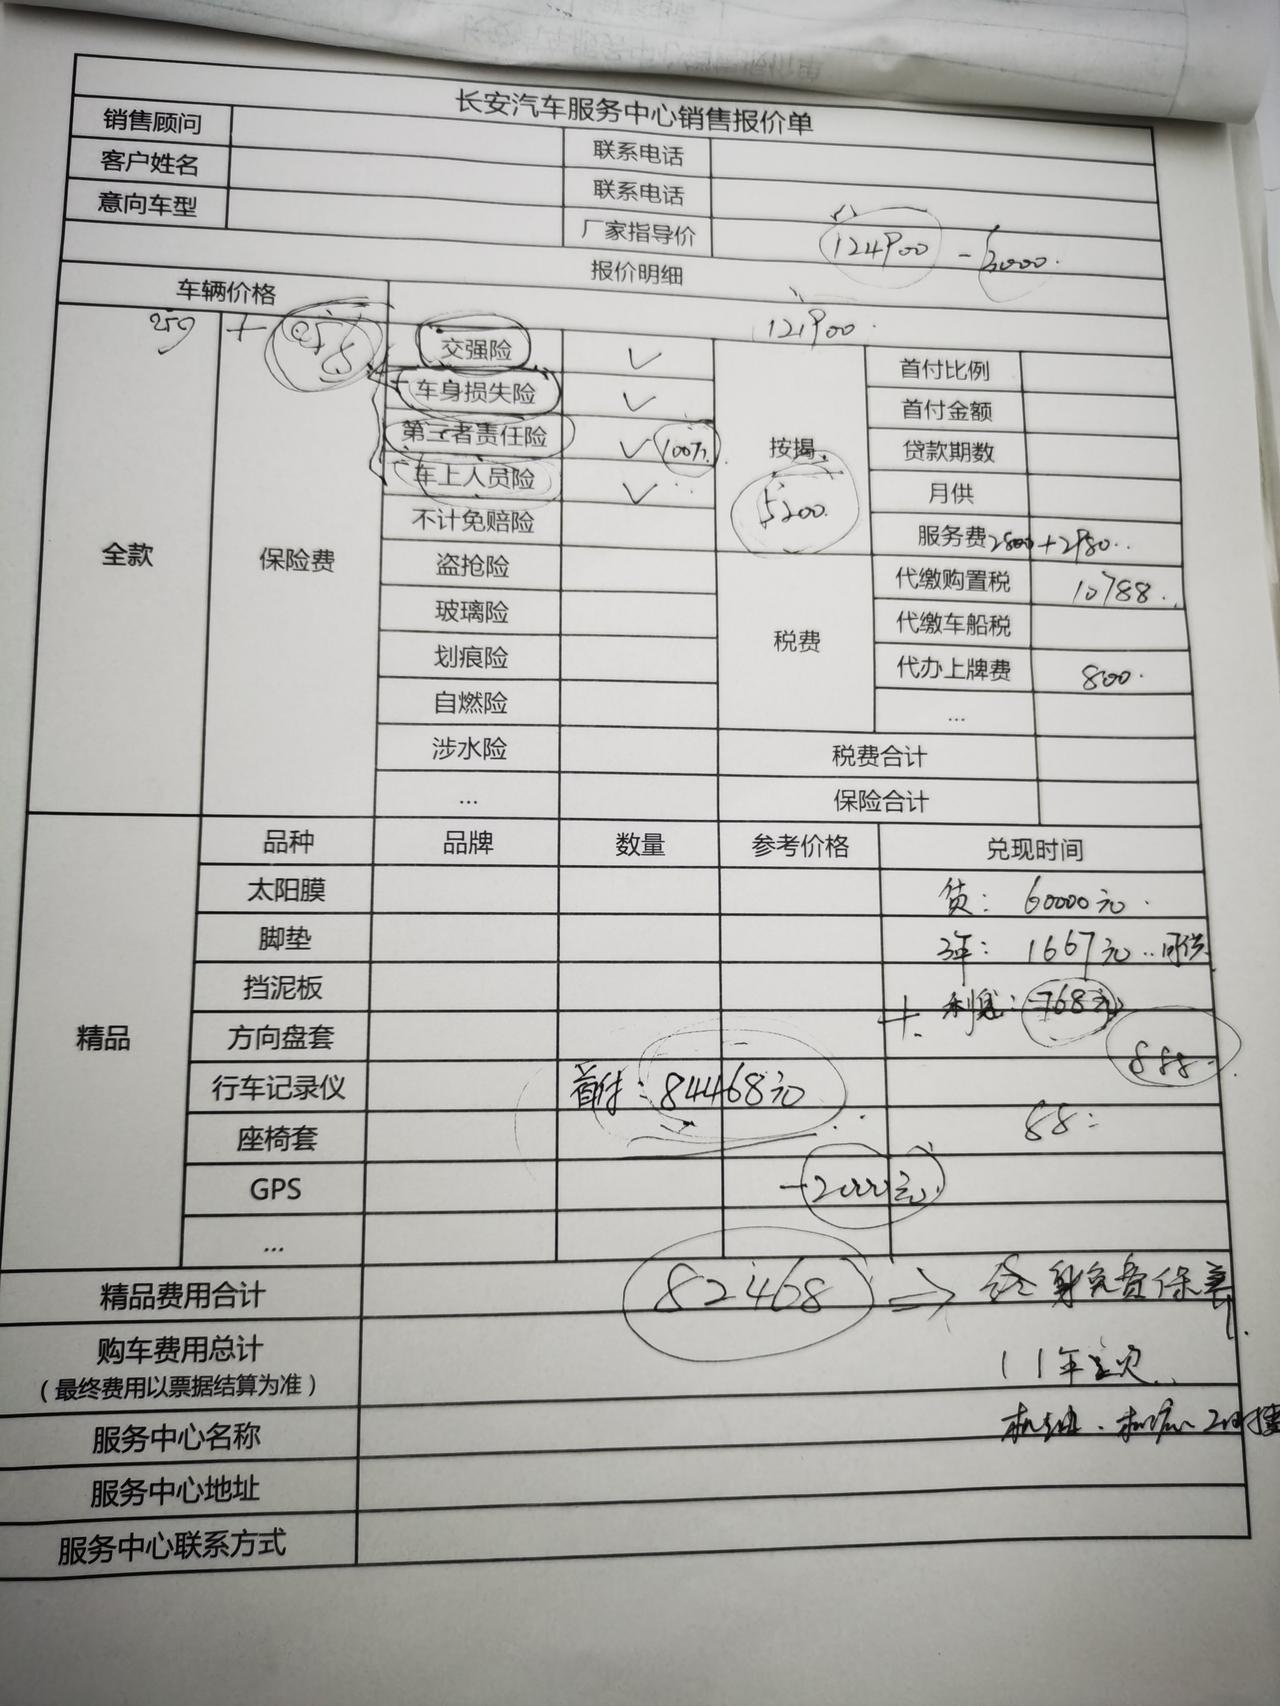 长安汽车服务中心销售报价单
销售顾问 联系电话
客户姓名 联系电话
意向车型 厂家指导价 124900 - 3000.
报价明细
车辆价格 121900.
全款 保险费 交强险 ✓ 按揭 5200. 首付比例
车身损失险 ✓ 首付金额
第三者责任险 ✓ 100万. 贷款期数
车上人员险 ✓ 月供
不计免赔险 服务费 2800+2980..
盗抢险 税费 代缴购置税 10788..
玻璃险 代缴车船税
划痕险 代办上牌费 800.
自燃险 ...
涉水险 税费合计
... 保险合计
精品 品种 品牌 数量 参考价格 兑现时间
太阳膜 贷: 60000元.
脚垫 3年: 1667元..月供
挡泥板 + 利息: 768元
方向盘套 888.
行车记录仪 首付: 84468元
座椅套 88:
GPS -2000元.
...
精品费用合计 82468 ⇒ 终身免费保养
购车费用总计
(最终费用以票据结算为准) 11年
服务中心名称 机油.
服务中心地址
服务中心联系方式